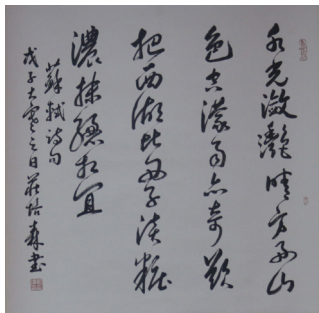 水光瀲灩晴方好山
色空濛雨亦奇欲
把西湖比西子淡粧
濃抹總相宜
蘇軾詩句
戊子大雪之日莊培森書